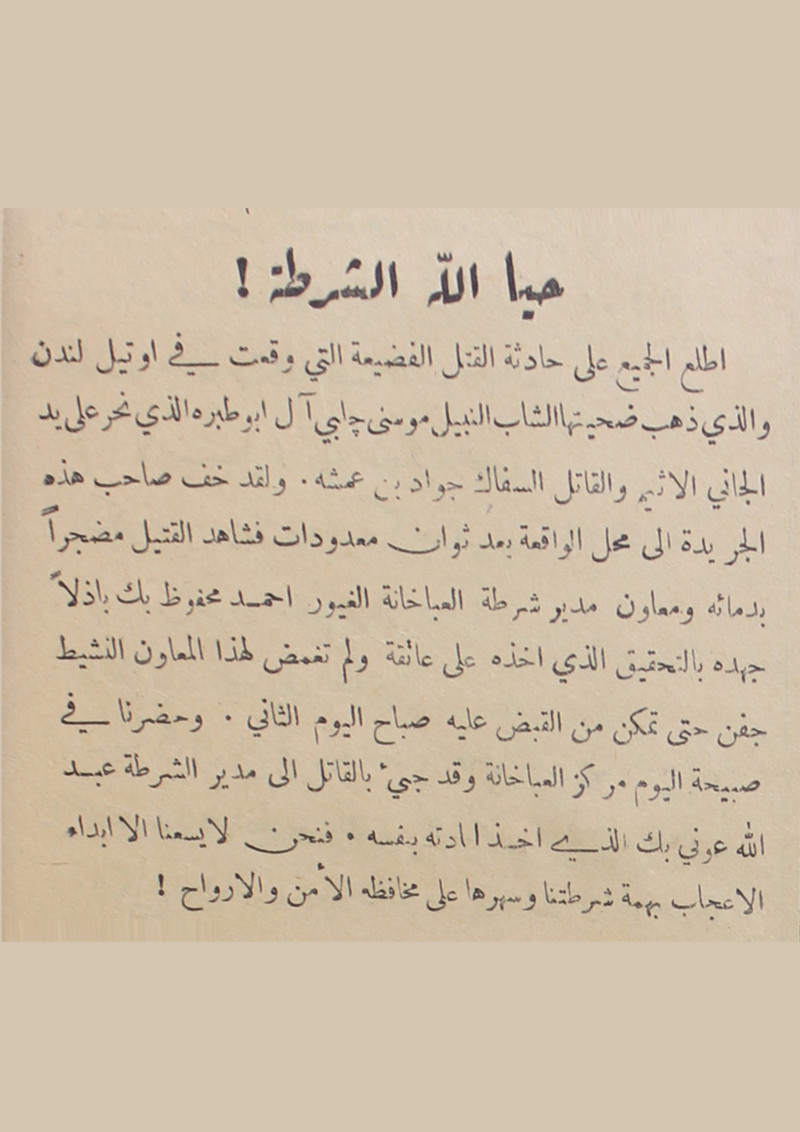 حيا الله الشرطة !
اطلع الجميع على حادثة القتل الفضيعة التي وقعت في اوتيل لندن
والذي ذهب ضحيتها الشاب النبيل موسى چلبي آل ابو طبره الذي نحر على يد
الجاني الاثيم والقاتل السفاك جواد بن عمشه . ولقد خف صاحب هذه
الجريدة الى محل الواقعة بعد ثوان معدودات فشاهد القتيل مضجراً
بدمائه ومعاون مدير شرطة العباخانة الغيور احمد محفوظ بك باذلاً
جهده بالتحقيق الذي اخذه على عاتقة ولم تغمض لهذا المعاون النشيط
جفن حتى تمكن من القبض عليه صباح اليوم الثاني . وحضرنا في
صبيحة اليوم مركز العباخانة وقد جيء بالقاتل الى مدير الشرطة عبد
الله عوني بك الذي اخذ ادته بنفسه . فنحن لا يسعنا الا ابداء
الاعجاب بهمة شرطتنا وسهرها على محافظه الأمن والارواح !